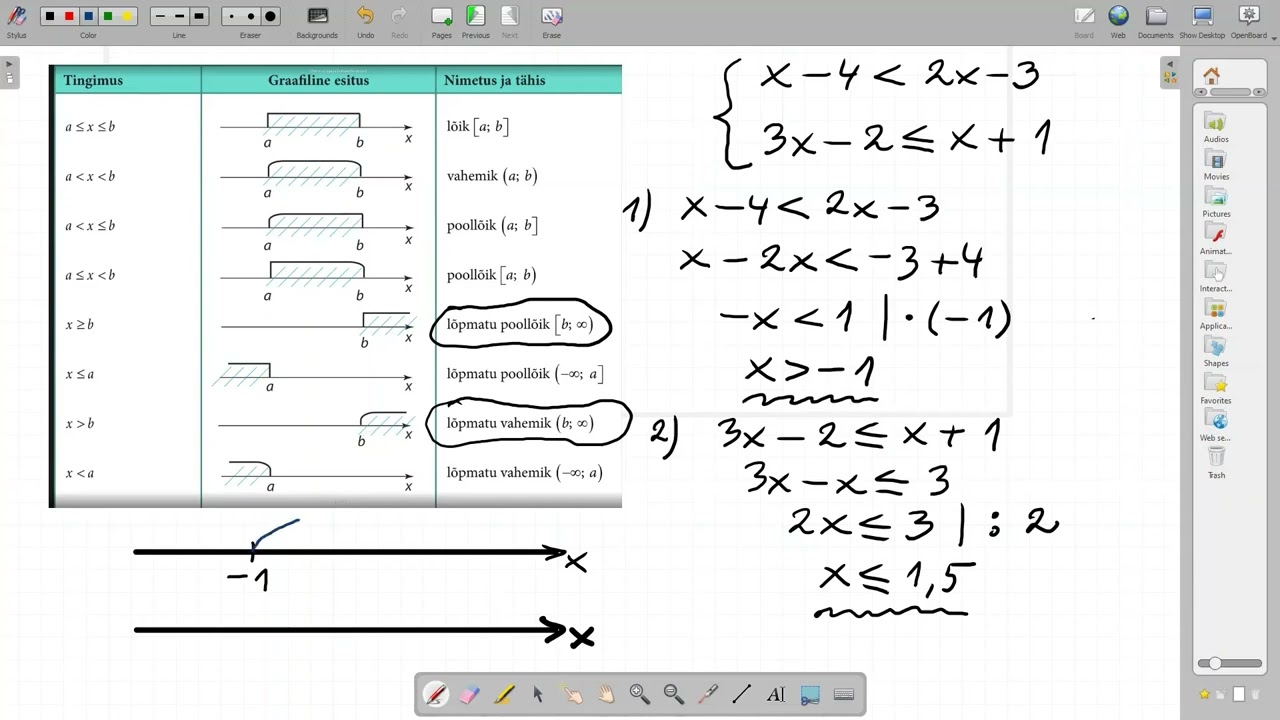 Stylus Color Line Eraser Backgrounds Undo Redo Pages Previous Next Erase Board Web Documents Show Desktop OpenBoard
Tingimus Graafiline esitus Nimetus ja tähis
a ≤ x ≤ b a b x lõik [a; b]
a < x < b a b x vahemik (a; b)
a < x ≤ b a b x poollõik (a; b]
a ≤ x < b a b x poollõik [a; b)
x ≥ b b x lõpmatu poollõik [b; ∞)
x ≤ a a x lõpmatu poollõik (−∞; a]
x > b b x lõpmatu vahemik (b; ∞)
x < a a x lõpmatu vahemik (−∞; a)
−1 x
x
x − 4 < 2x − 3
3x − 2 ≤ x + 1
1) x − 4 < 2x − 3
x − 2x < −3 + 4
−x < 1 | · (−1)
x > −1
2) 3x − 2 ≤ x + 1
3x − x ≤ 3
2x ≤ 3 | : 2
x ≤ 1,5
Audios
Movies
Pictures
Animat...
Interact...
Applica...
Shapes
Favorites
Web se...
Trash
AI